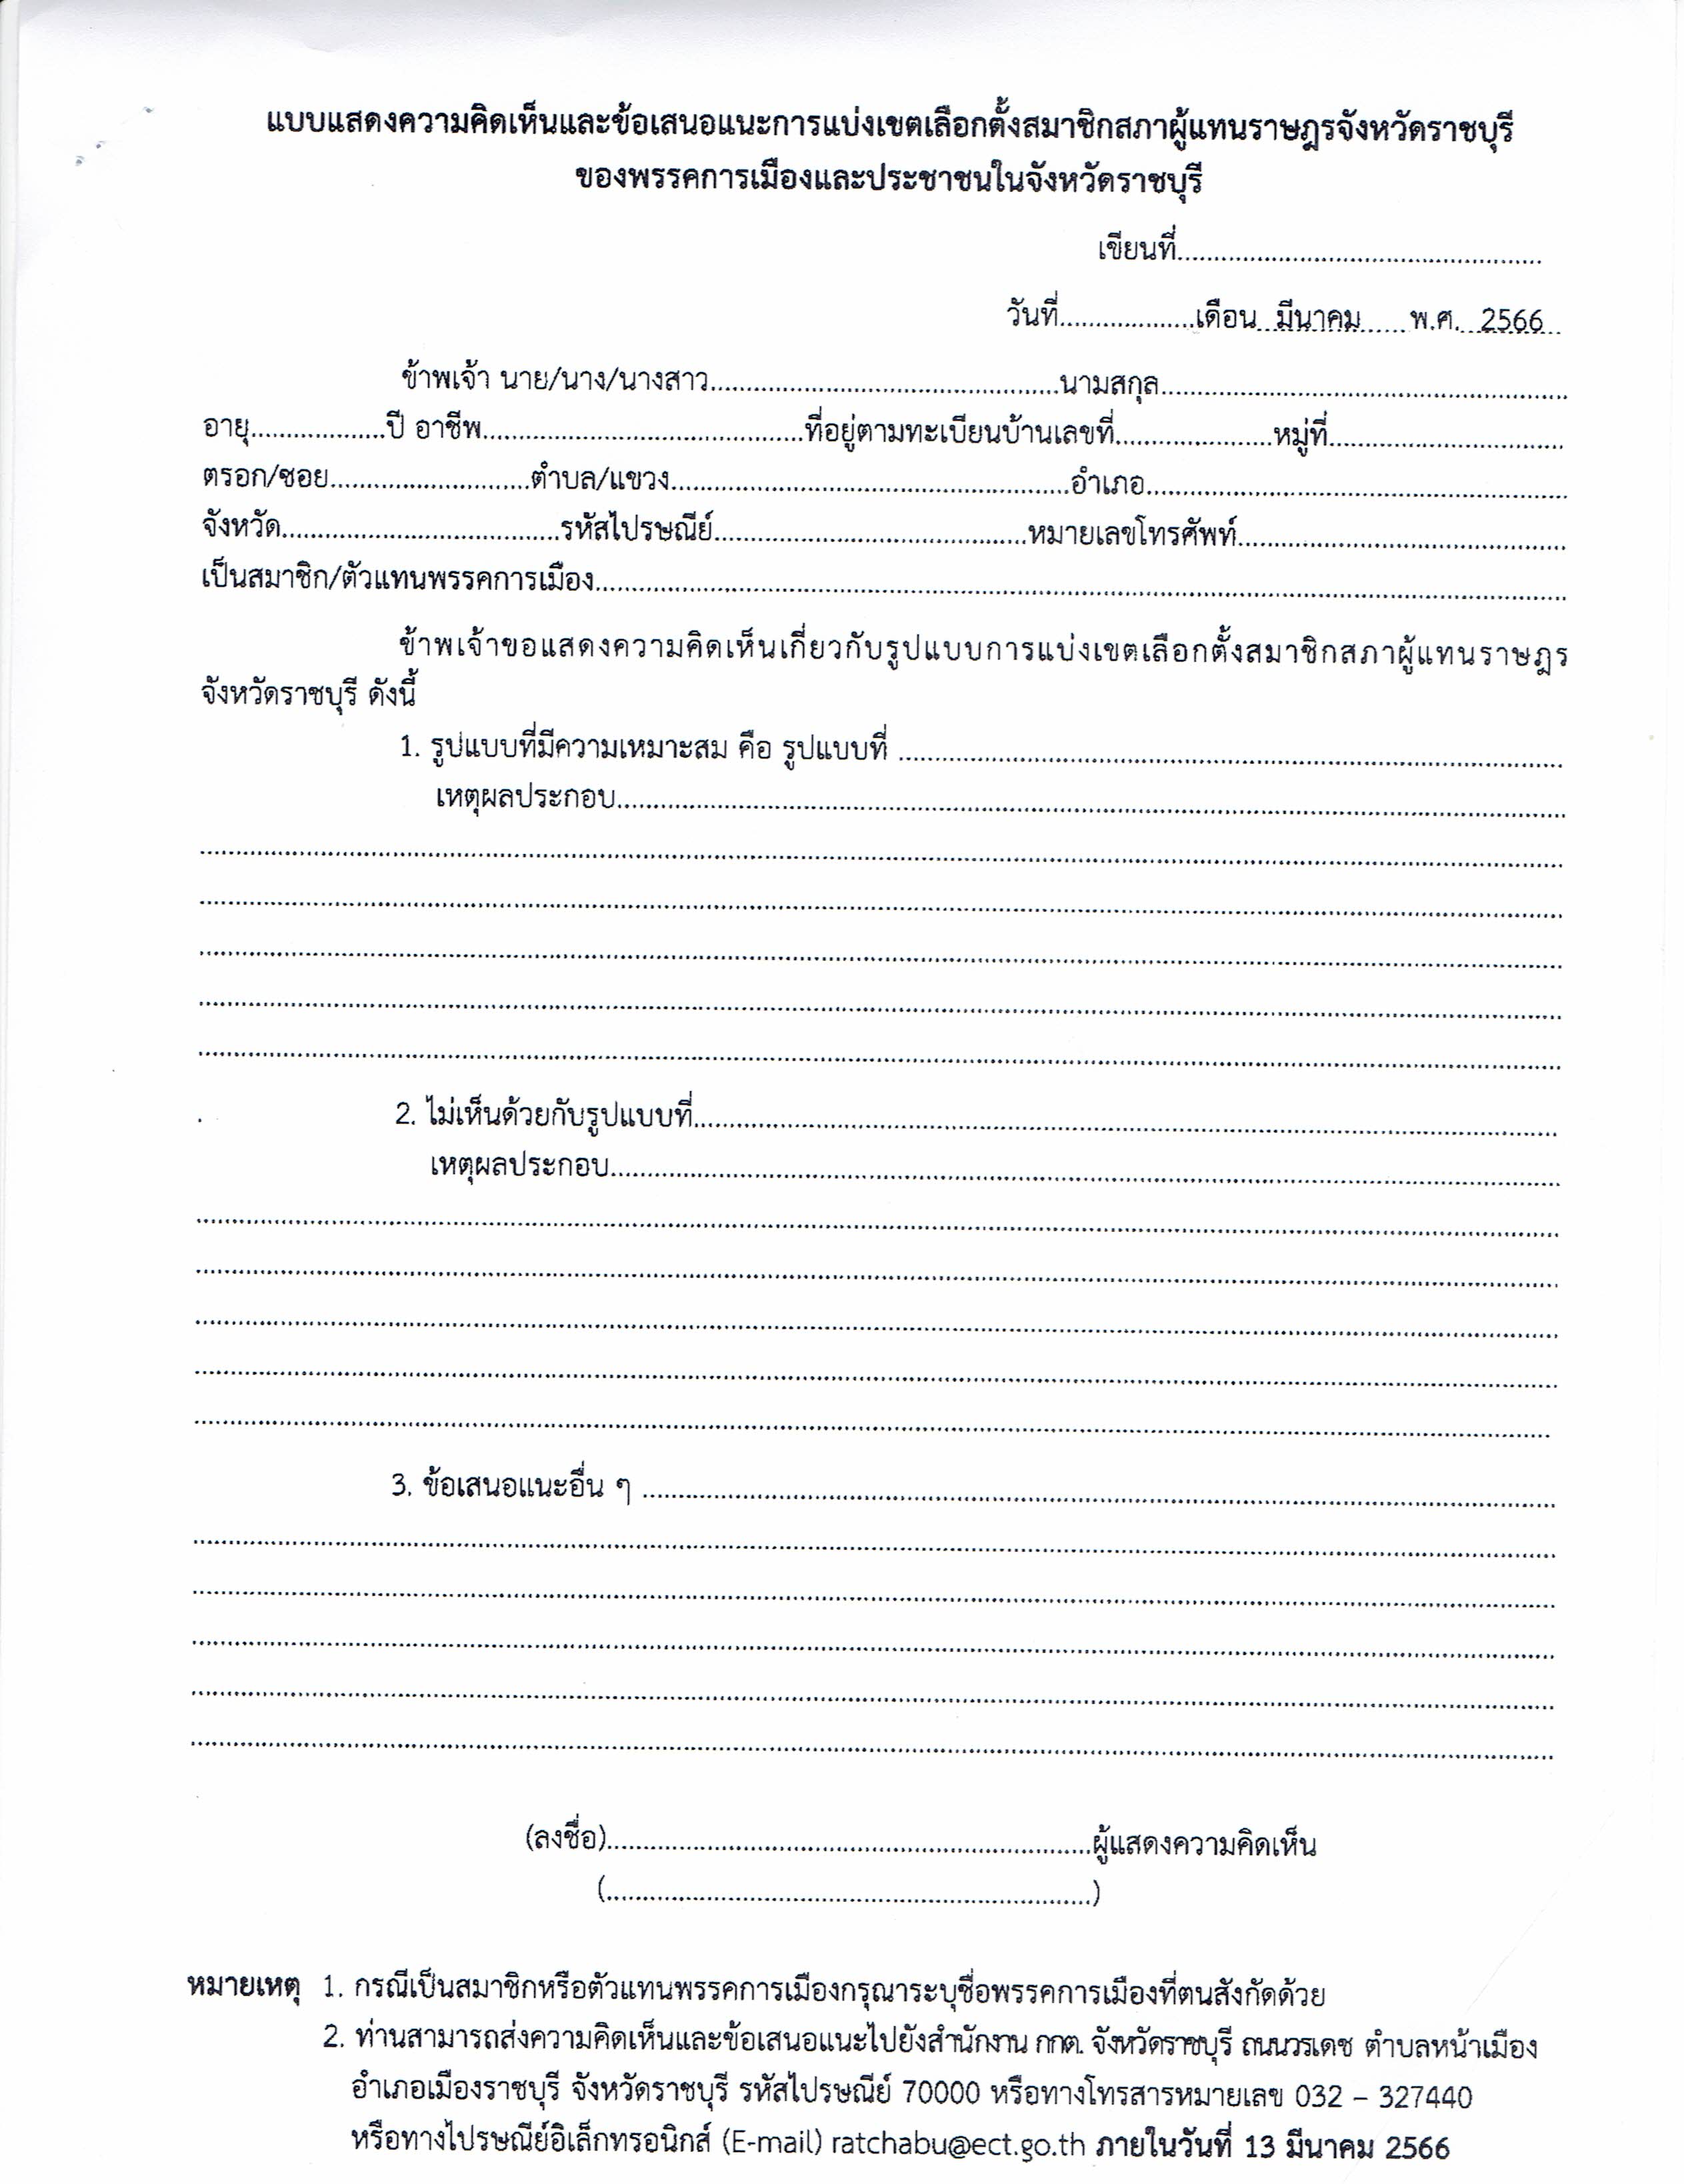 แบบแสดงความคิดเห็นและข้อเสนอแนะการแบ่งเขตเลือกตั้งสมาชิกสภาผู้แทนราษฎรจังหวัดราชบุรี
ของพรรคการเมืองและประชาชนในจังหวัดราชบุรี
เขียนที่..................................................
วันที่...................เดือน...มีนาคม......พ.ศ....2566...
ข้าพเจ้า นาย/นาง/นางสาว..................................................นามสกุล..................................................
อายุ...................ปี อาชีพ..............................................ที่อยู่ตามทะเบียนบ้านเลขที่......................หมู่ที่.................................
ตรอก/ซอย............................ตำบล/แขวง.........................................................อำเภอ............................................................
จังหวัด........................................รหัสไปรษณีย์.............................................หมายเลขโทรศัพท์...............................................
เป็นสมาชิก/ตัวแทนพรรคการเมือง..........................................................................................................................................
ข้าพเจ้าขอแสดงความคิดเห็นเกี่ยวกับรูปแบบการแบ่งเขตเลือกตั้งสมาชิกสภาผู้แทนราษฎร
จังหวัดราชบุรี ดังนี้
1. รูปแบบที่มีความเหมาะสม คือ รูปแบบที่ ...............................................................................................
เหตุผลประกอบ........................................................................................................................................
2. ไม่เห็นด้วยกับรูปแบบที่...........................................................................................................................
เหตุผลประกอบ........................................................................................................................................
3. ข้อเสนอแนะอื่น ๆ ..................................................................................................................................
(ลงชื่อ).....................................................................ผู้แสดงความคิดเห็น
(.....................................................................)
หมายเหตุ 1. กรณีเป็นสมาชิกหรือตัวแทนพรรคการเมืองกรุณาระบุชื่อพรรคการเมืองที่ตนสังกัดด้วย
2. ท่านสามารถส่งความคิดเห็นและข้อเสนอแนะไปยังสำนักงาน กกต. จังหวัดราชบุรี ถนนวรเดช ตำบลหน้าเมือง
อำเภอเมืองราชบุรี จังหวัดราชบุรี รหัสไปรษณีย์ 70000 หรือทางโทรสารหมายเลข 032 – 327440
หรือทางไปรษณีย์อิเล็กทรอนิกส์ (E-mail) ratchabu@ect.go.th ภายในวันที่ 13 มีนาคม 2566